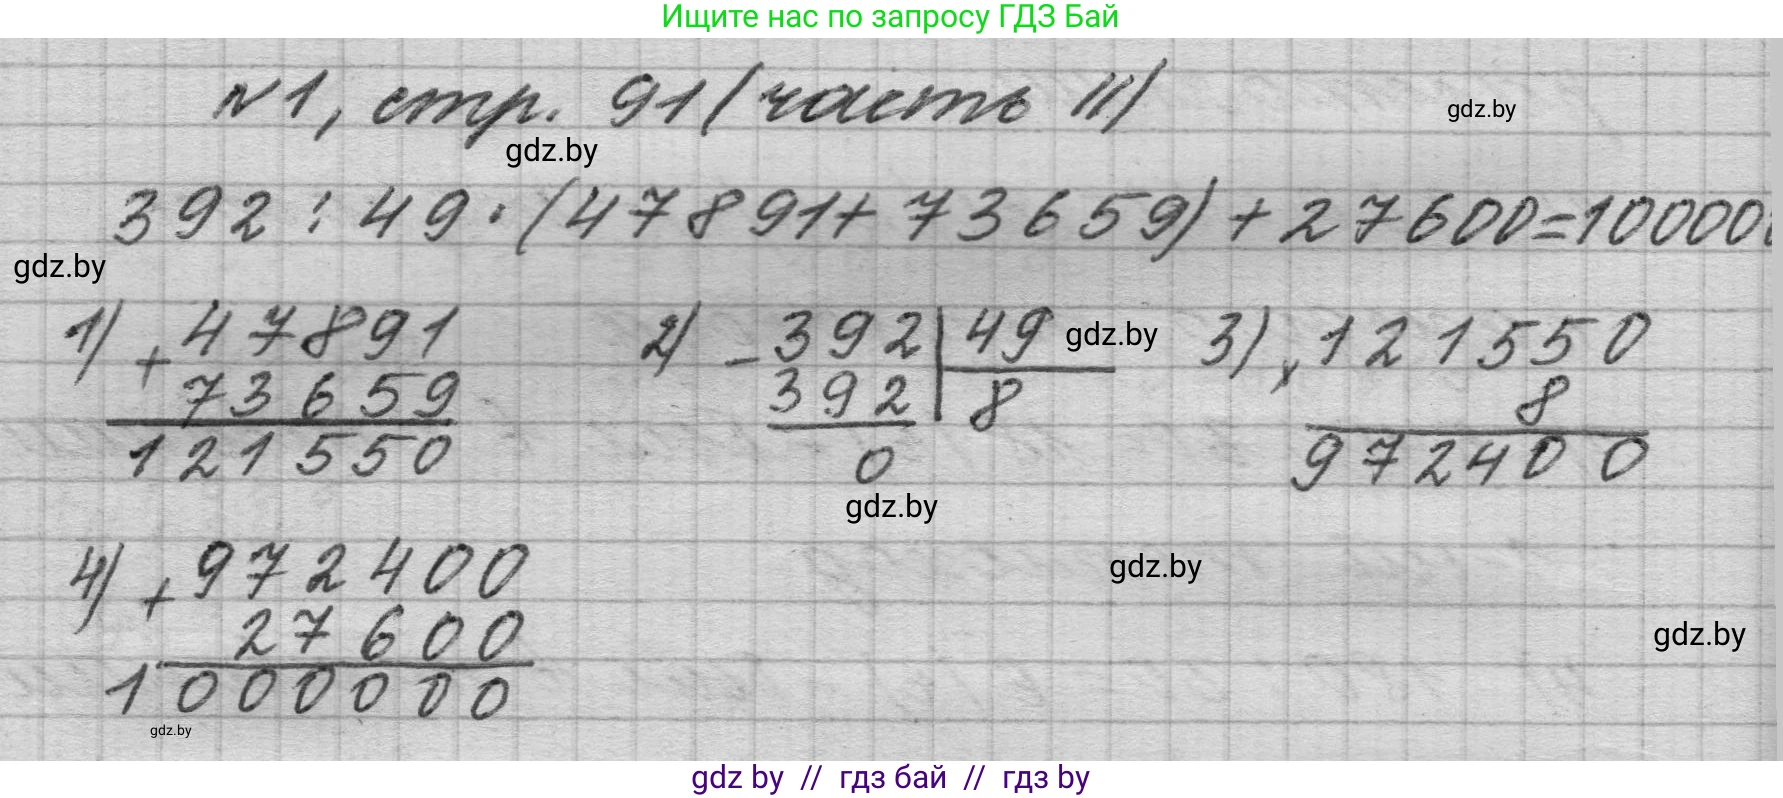 Ищите нас по запросу ГДЗ Бай
№1, стр. 91 (часть II)
gdz.by
gdz.by
392 : 49 · (47891 + 73659) + 27600 = 1000000
gdz.by
1) + 47891
73659
121550
2) - 392 | 49
392 8
0
gdz.by
3) x 121550
8
972400
gdz.by
4) + 972400
27600
1000000
gdz.by
gdz.by
gdz.by
gdz by // гдз бай // гдз by